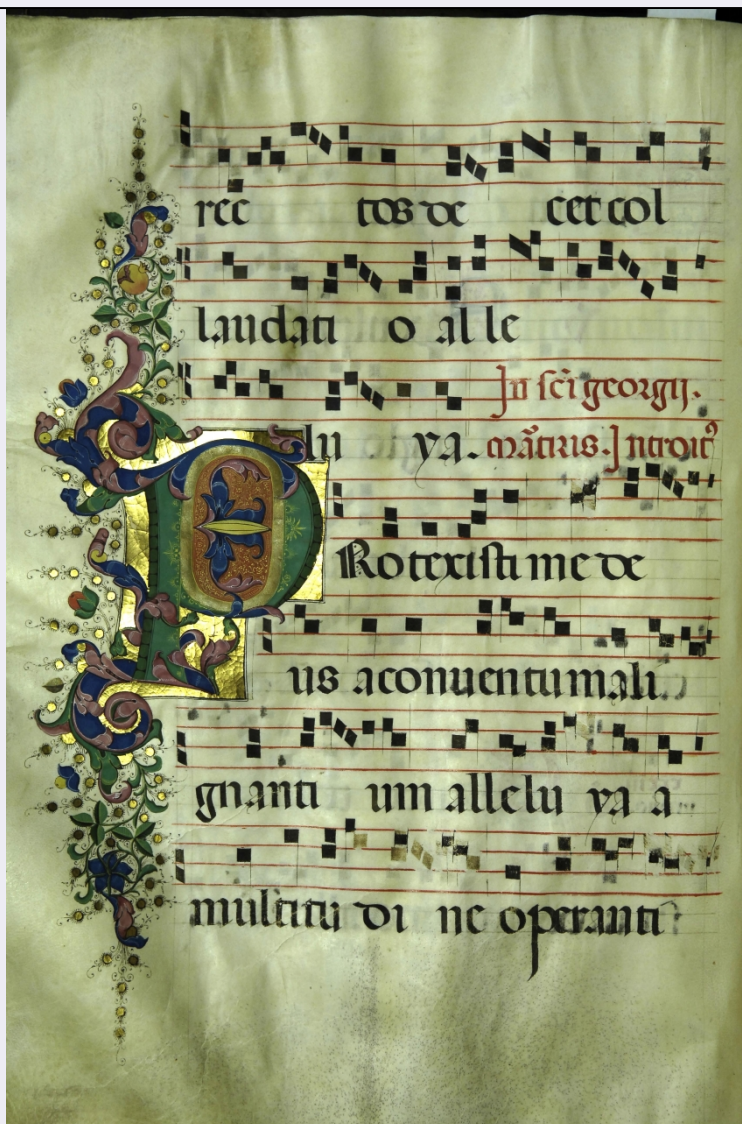 rec tos de cet col
laudati o al le
lu ya. In sc̃i georgij.
mãtiris. Introit⁹
PRotexisti me de
us a conuentu mali
gnanti um allelu ya a
multitu di ne operanti